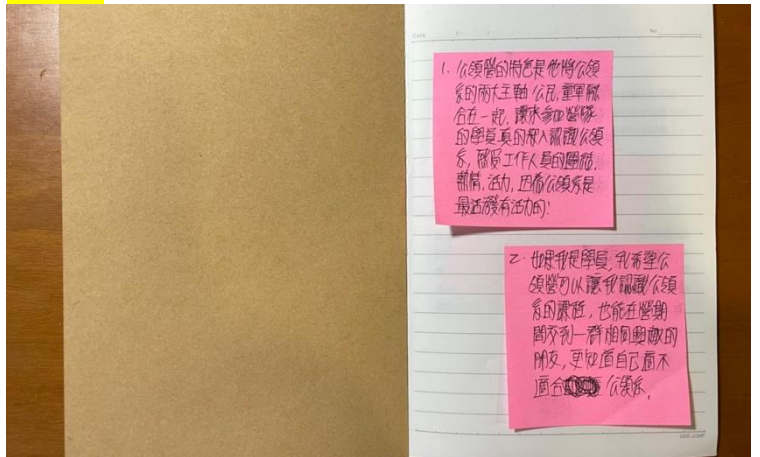 DATE / /
NO.
1. 公領營的特色是他將公領
系的兩大主軸公民,童軍融
合在一起,讓來參加營隊
的學員真的深入認識公領
系,感受工作人員的團結.
熱情.活力,因為公領系是
最活潑有活力的!
2. 如果我是學員,我希望公
領營可以讓我認識公領
系的課程,也能在營期
間交到一群相同興趣的
朋友,更知道自己適不
適合 公領系.